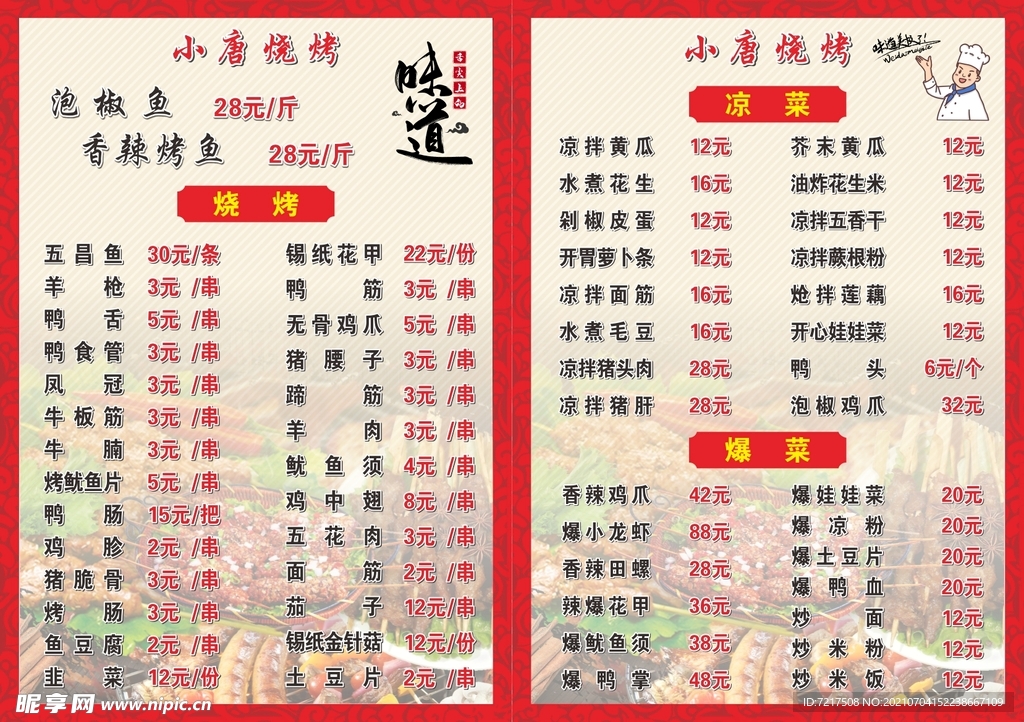 小唐烧烤
味道
舌尖上的
泡椒鱼 28元/斤
香辣烤鱼 28元/斤
烧烤
五昌鱼 30元/条
羊枪 3元/串
鸭舌 5元/串
鸭食管 3元/串
凤冠 3元/串
牛板筋 3元/串
牛腩 3元/串
烤鱿鱼片 5元/串
鸭肠 15元/把
鸡胗 2元/串
猪脆骨 3元/串
烤肠 3元/串
鱼豆腐 2元/串
韭菜 12元/份
锡纸花甲 22元/份
鸭筋 3元/串
无骨鸡爪 5元/串
猪腰子 3元/串
蹄筋 3元/串
羊肉 3元/串
鱿鱼须 4元/串
鸡中翅 8元/串
五花肉 3元/串
面筋 2元/串
茄子 12元/串
锡纸金针菇 12元/份
土豆片 2元/串
小唐烧烤
凉菜
凉拌黄瓜 12元
水煮花生 16元
剁椒皮蛋 12元
开胃萝卜条 12元
凉拌面筋 16元
水煮毛豆 16元
凉拌猪头肉 28元
凉拌猪肝 28元
芥末黄瓜 12元
油炸花生米 12元
凉拌五香干 12元
凉拌蕨根粉 12元
炝拌莲藕 16元
开心娃娃菜 12元
鸭头 6元/个
泡椒鸡爪 32元
爆菜
香辣鸡爪 42元
爆小龙虾 88元
香辣田螺 28元
辣爆花甲 36元
爆鱿鱼须 38元
爆鸭掌 48元
爆娃娃菜 20元
爆凉粉 20元
爆土豆片 20元
爆鸭血 20元
炒面 12元
炒米粉 12元
炒米饭 12元
昵享网 www.nipic.cn
ID:7217508 NO:20210704152238667109